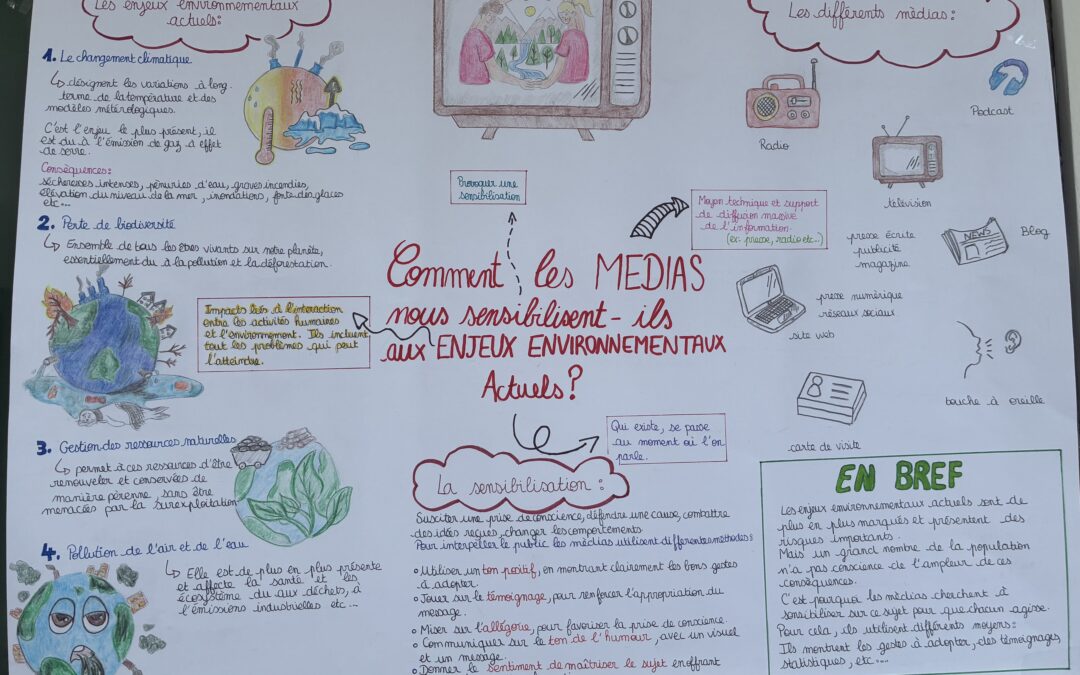 Les enjeux environnementaux
actuels:
1. Le changement climatique
↳ désignent les variations à long
terme de la température et des
modèles météorologiques.
C'est l'enjeu le plus présent, il
est du à l'émission de gaz à effet
de serre.
Conséquences:
sécheresses intenses, pénuries d'eau, graves incendies,
élévation du niveau de la mer, inondations, fonte des glaces
etc...
2. Perte de biodiversité
↳ Ensemble de tous les êtres vivants sur notre planète,
essentiellement du à la pollution et la déforestation.
Impacts liés à l'interaction
entre les activités humaines
et l'environnement. Ils incluent
tout les problèmes qui peut
l'atteindre.
3. Gestion des ressources naturelles
↳ permet à ces ressources d'être
renouveler et conservées de
manière pérenne, sans être
menacées par la surexploitation
4. Pollution de l'air et de l'eau
↳ Elle est de plus en plus présente
et affecte la santé et les
écosystème du aux déchets, à
l'émissions industrielles etc...
Provoquer une
sensibilisation
Comment les MEDIAS
nous sensibilisent-ils
aux ENJEUX ENVIRONNEMENTAUX
Actuels?
Qui existe, se passe
au moment où l'on
parle.
La sensibilisation :
Susciter une prise de conscience, défendre une cause, combattre
des idées reçues, changer les comportements.
Pour interpeller le public les médias utilisent différentes méthodes:
○ Utiliser un ton positif, en montrant clairement les bons gestes
à adopter.
○ Jouer sur le témoignage, pour renforcer l'appropriation du
message.
○ Miser sur l'allégorie, pour favoriser la prise de conscience.
○ Communiquer sur le ton de l'humour, avec un visuel
et un message.
○ Donner le sentiment de maîtriser le sujet en offrant
Les différents médias:
Radio
Podcast
télévision
Moyen technique et support
de diffusion massive
de l'information.
(ex: presse, radio etc..)
presse écrite
publicité
magazine
NEWS
Blog
presse numérique
réseaux sociaux
site web
bouche à oreille
carte de visite
EN BREF
Les enjeux environnementaux actuels sont de
plus en plus marqués et présentent des
risques importants.
Mais un grand nombre de la population
n'a pas conscience de l'ampleur de ces
conséquences.
C'est pourquoi les médias cherchent à
sensibiliser sur ce sujet pour que chacun agisse.
Pour cela, ils utilisent différents moyens:
Ils montrent les gestes à adopter, des témoignages,
statistiques, etc....